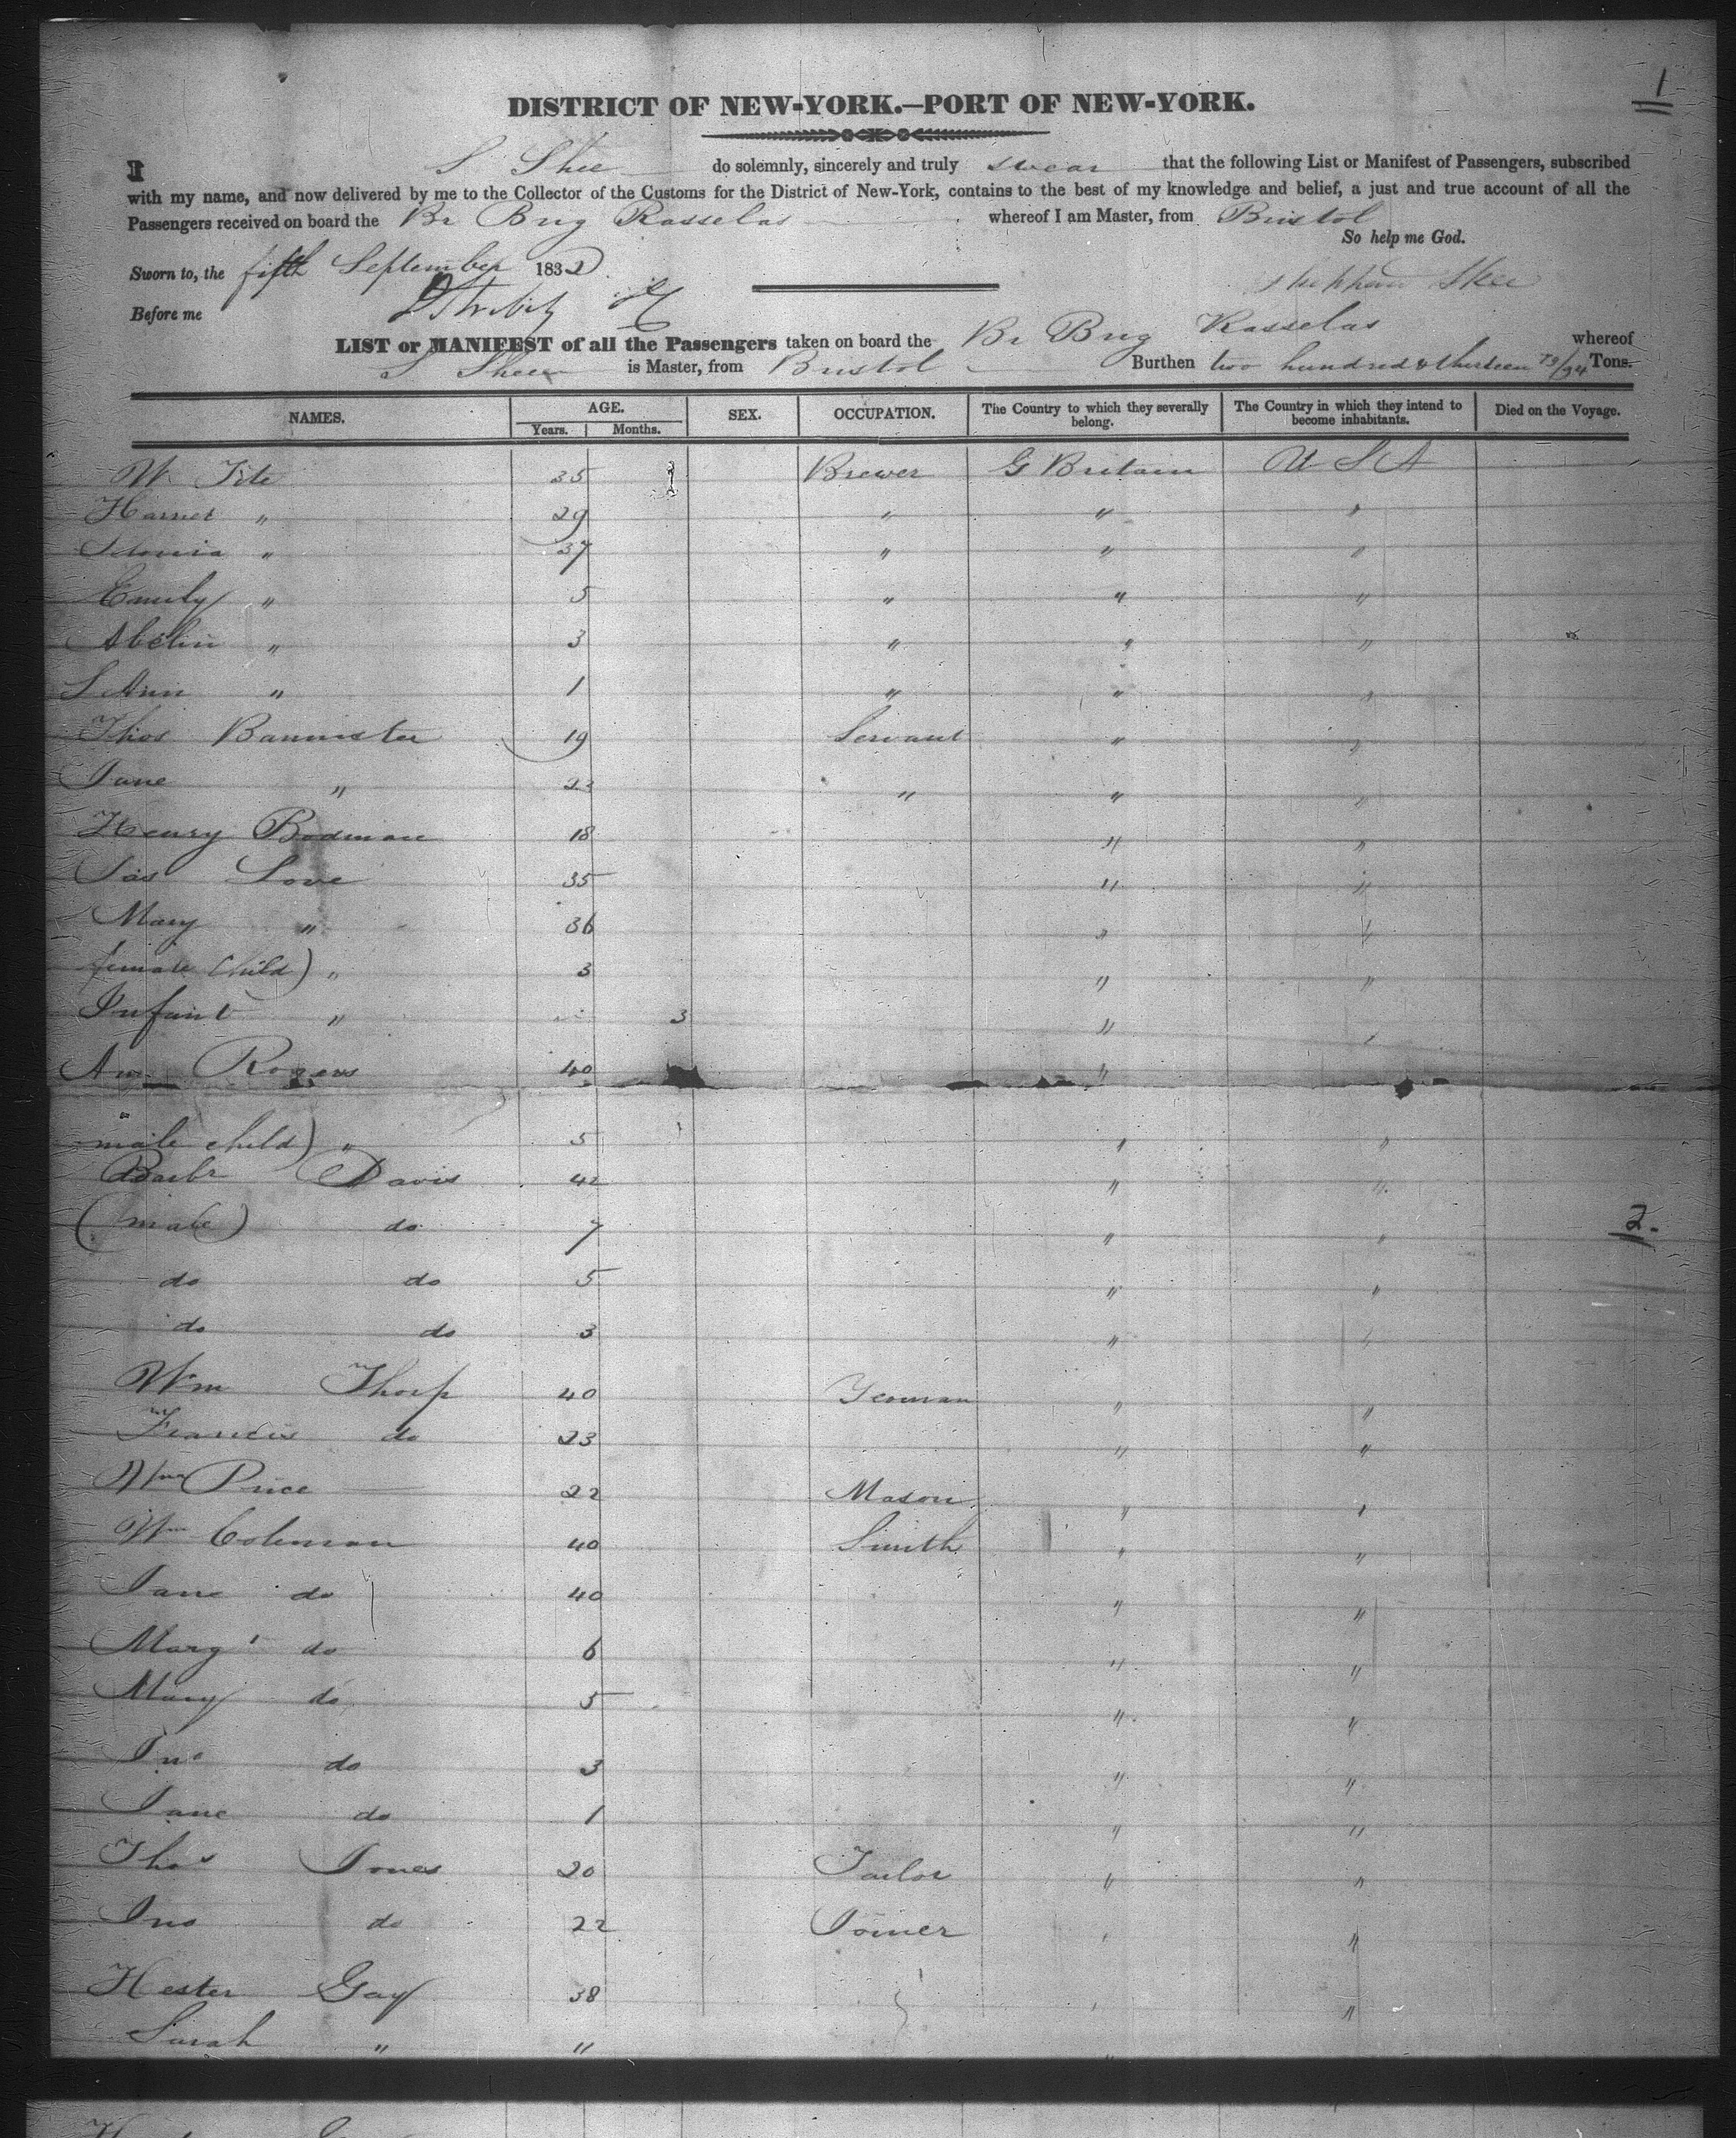 1
DISTRICT OF NEW-YORK.—PORT OF NEW-YORK.
I S Shee do solemnly, sincerely and truly swear that the following List or Manifest of Passengers, subscribed
with my name, and now delivered by me to the Collector of the Customs for the District of New-York, contains to the best of my knowledge and belief, a just and true account of all the
Passengers received on board the Br Brig Rasselas whereof I am Master, from Bristol
So help me God.
Sworn to, the fifth September 1832
Shee
Before me
LIST or MANIFEST of all the Passengers taken on board the Br Brig Rasselas whereof
S Shee is Master, from Bristol Burthen two hundred & thirteen 79/94 Tons.
NAMES. AGE. SEX. OCCUPATION. The Country to which they severally belong. The Country in which they intend to become inhabitants. Died on the Voyage.
Years. Months.
W 35 Brewer G Britain U S A
Harriet " 29 " " "
" 37 " " "
Emily " 5 " " "
" 3 " " "
S Ann " 1 " " "
Thos Bannister 19 Servant " "
Jane " 23 " " "
Henry Bodman 18 " "
Jas Love 35 " "
Mary " 36 " "
female Child) " 3 " "
Infant " 3 " "
Ann Rogers 40 "
male child) " 5 " "
Davis 42 " "
(male) do 7 " "
do do 5 " "
do do 3 " "
2.
Wm Thorp 40 Yeoman " "
Francis do 23 " "
Wm Price 22 Mason " "
Wm Coleman 40 Smith " "
Jane do 40 " "
Margt do 6 " "
Mary do 5 " "
Jno do 3 " "
Jane do 1 " "
Thos Jones 20 Tailor " "
Jno do 22 Joiner " "
Hester Gay 38 " "
Sarah " 11 "